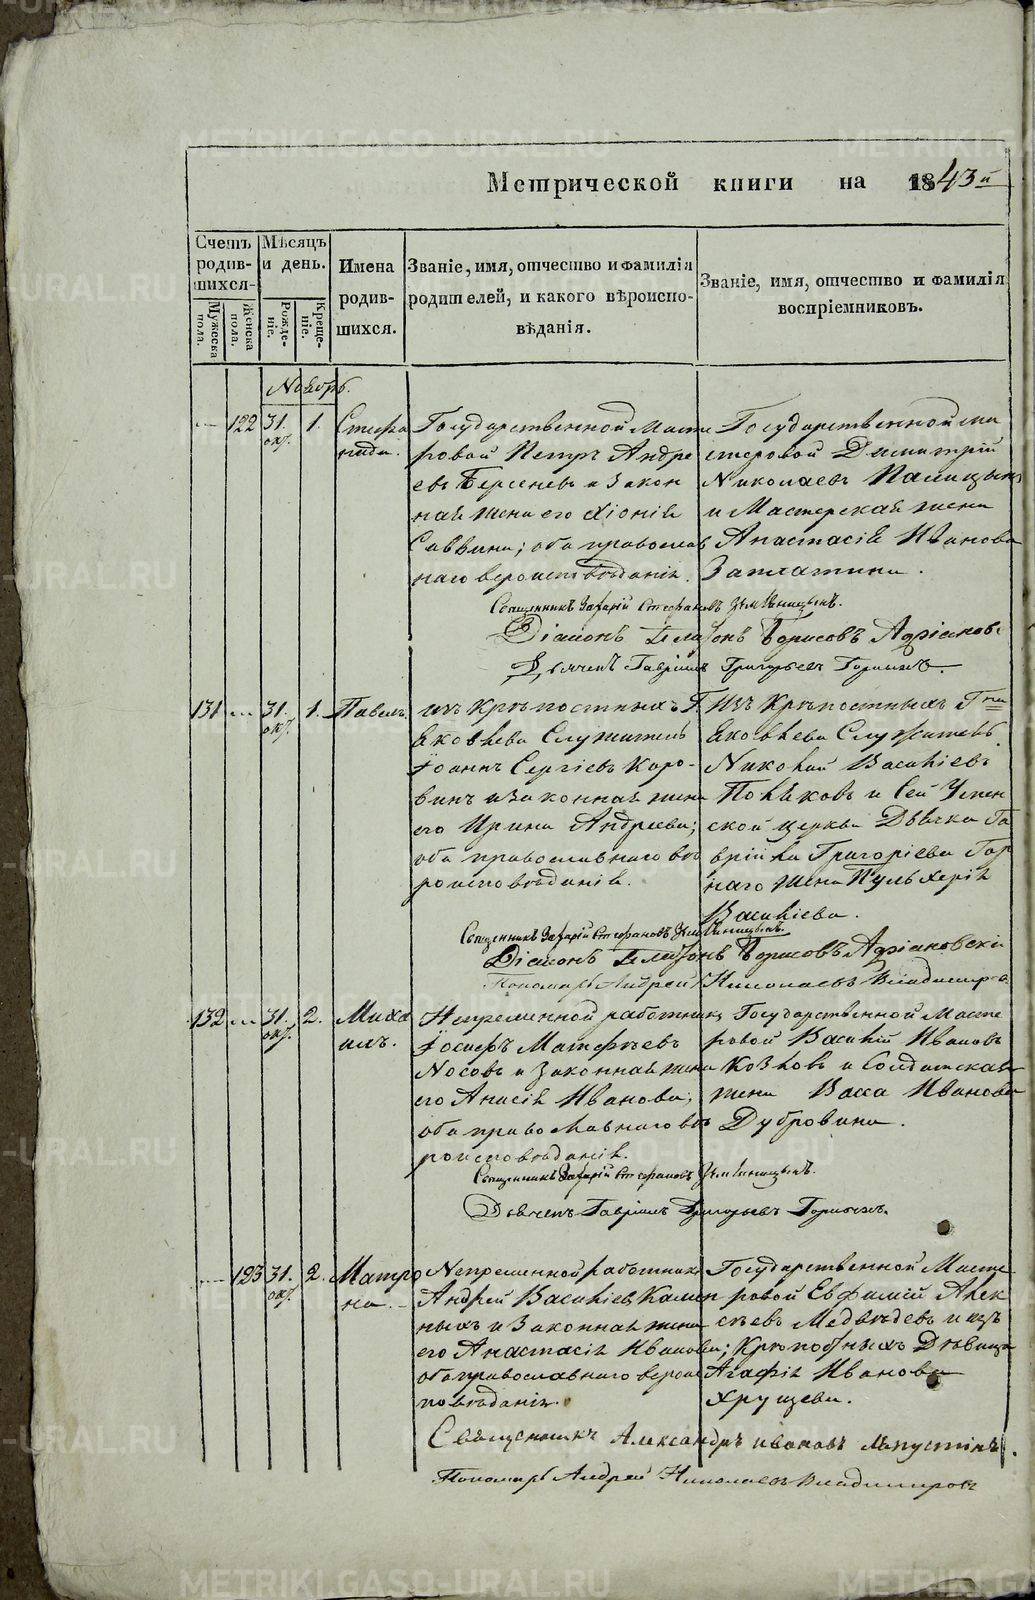 METRIKI.GASO-URAL.RU
Метрической книги на 1843й
Счетъ родив-шихся.
Мѣсяцъ и день.
Имена родив-шихся.
Званіе, имя, отчество и фамилія родителей, и какого вѣроиспо-вѣданія.
Званіе, имя, отчество и фамилія воспріемниковъ.
Мужеска пола.
Женска пола.
Рожде-ніе.
Креще-ніе.
Ноябрь.
122 31. окт. 1.
Стефа
нида.
Государственной Масте
ровой Петръ Андре
евъ Берсеневъ и закон
ная жена его Хіонія
Саввина; оба православ
наго вероисповѣданія.
Государственной ма
стеровой Димитрій
Николаевъ Палицынъ
и Мастерская жена
Анастасія Иванова
Заплатина.
Священникъ Захарій Стефановъ
Діаконъ Борисовъ Адріановс
Дьячекъ Гавріилъ Григорьевъ Горныхъ
131 31. окт. 1.
Павелъ.
изъ Крѣпостныхъ Г.
Яковлева Служитель
Іоаннъ Сергіевъ Коро-
винъ и законная жена
его Ирина Андреева;
оба православнаго вѣ
роисповѣданія.
Изъ Крѣпостныхъ Г-на
Яковлева Служитель
Николай Василіевъ
Поляковъ и Сей Успен
ской церкви Дьячка Га
вріила Григоріева Гор
наго жена Пульхерія
Василіева.
Священникъ Захарій Стефановъ
Діаконъ Борисовъ Адріановскій
Пономарь Андрей Николаевъ Владимиро
132 31. окт. 2.
Миха
илъ.
Непременной работникъ
Іосифъ Матфѣевъ
Носовъ и законная жена
его Анисія Иванова;
оба православнаго вѣ
роисповѣданія.
Государственной Масте
ровой Василій Ивановъ
Козловъ и Солдатская
жена Васса Иванова
Дубровина.
Священникъ Захарій Стефановъ
Дьячекъ Гавріилъ Григорьевъ Горныхъ.
123 31. окт. 2.
Матро
на.
Непременной работникъ
Андрей Василіевъ Камен
ныхъ и законная жена
его Анастасія Иванова;
оба православнаго вероис
повѣданія.
Государственной Масте
ровой Евфимій Алек
сѣевъ Медвѣдевъ и изъ
Крѣпостныхъ Дѣвица
Агафія Иванова
Хрущева.
Священникъ Александръ Ивановъ Лапустинъ.
Пономарь Андрей Николаевъ Владимировъ